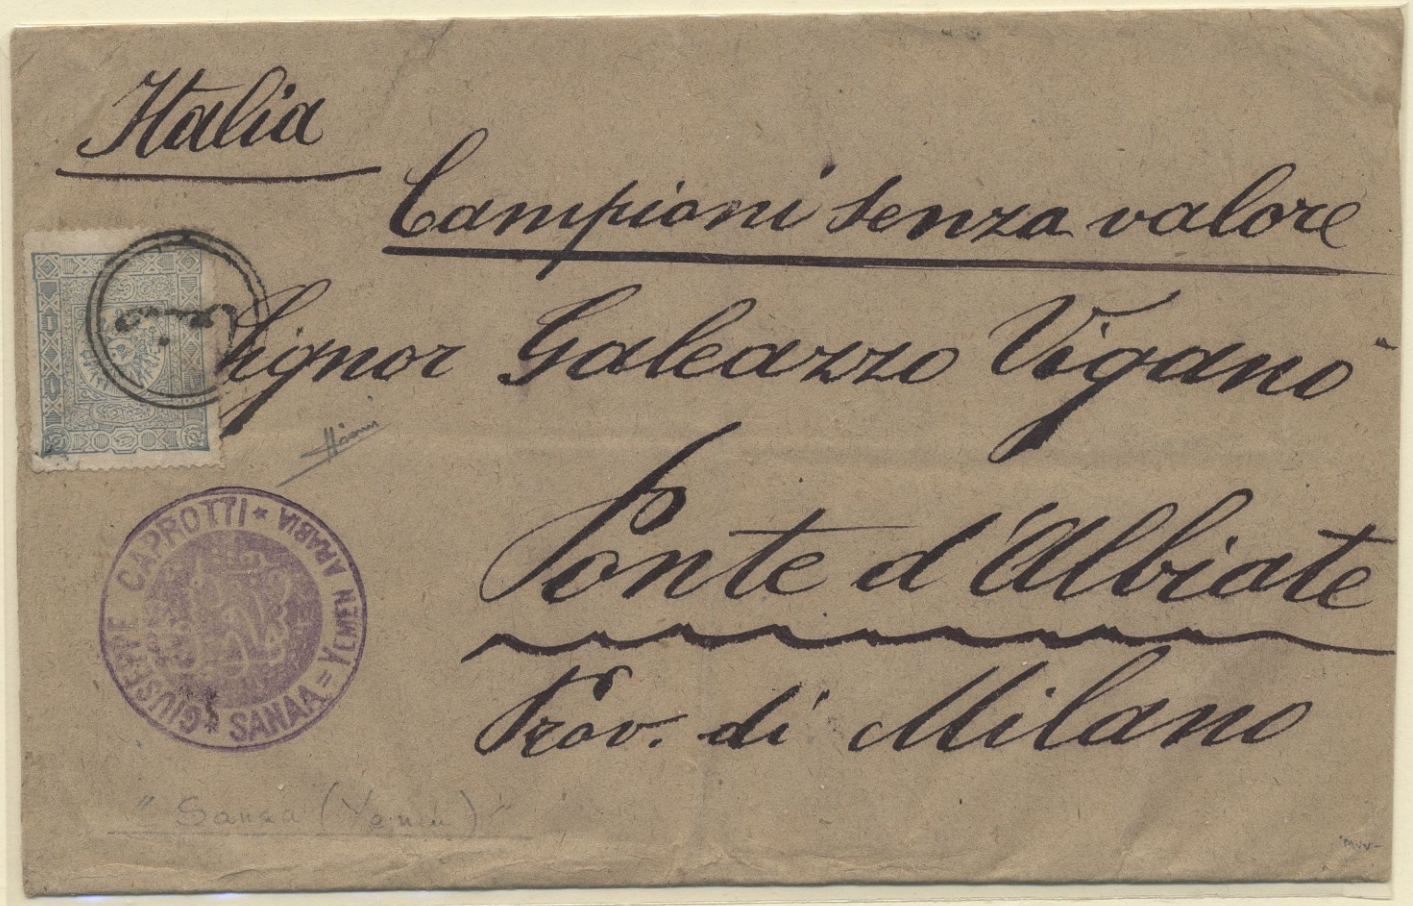 Italia
Campioni senza valore
Signor Galeazzo Viganò
Ponte d'Albiate
Prov. di Milano
GIUSEPPE CAPROTTI * SANAA = YEMEN ARABIA *
"Sanaa (Yemen)"